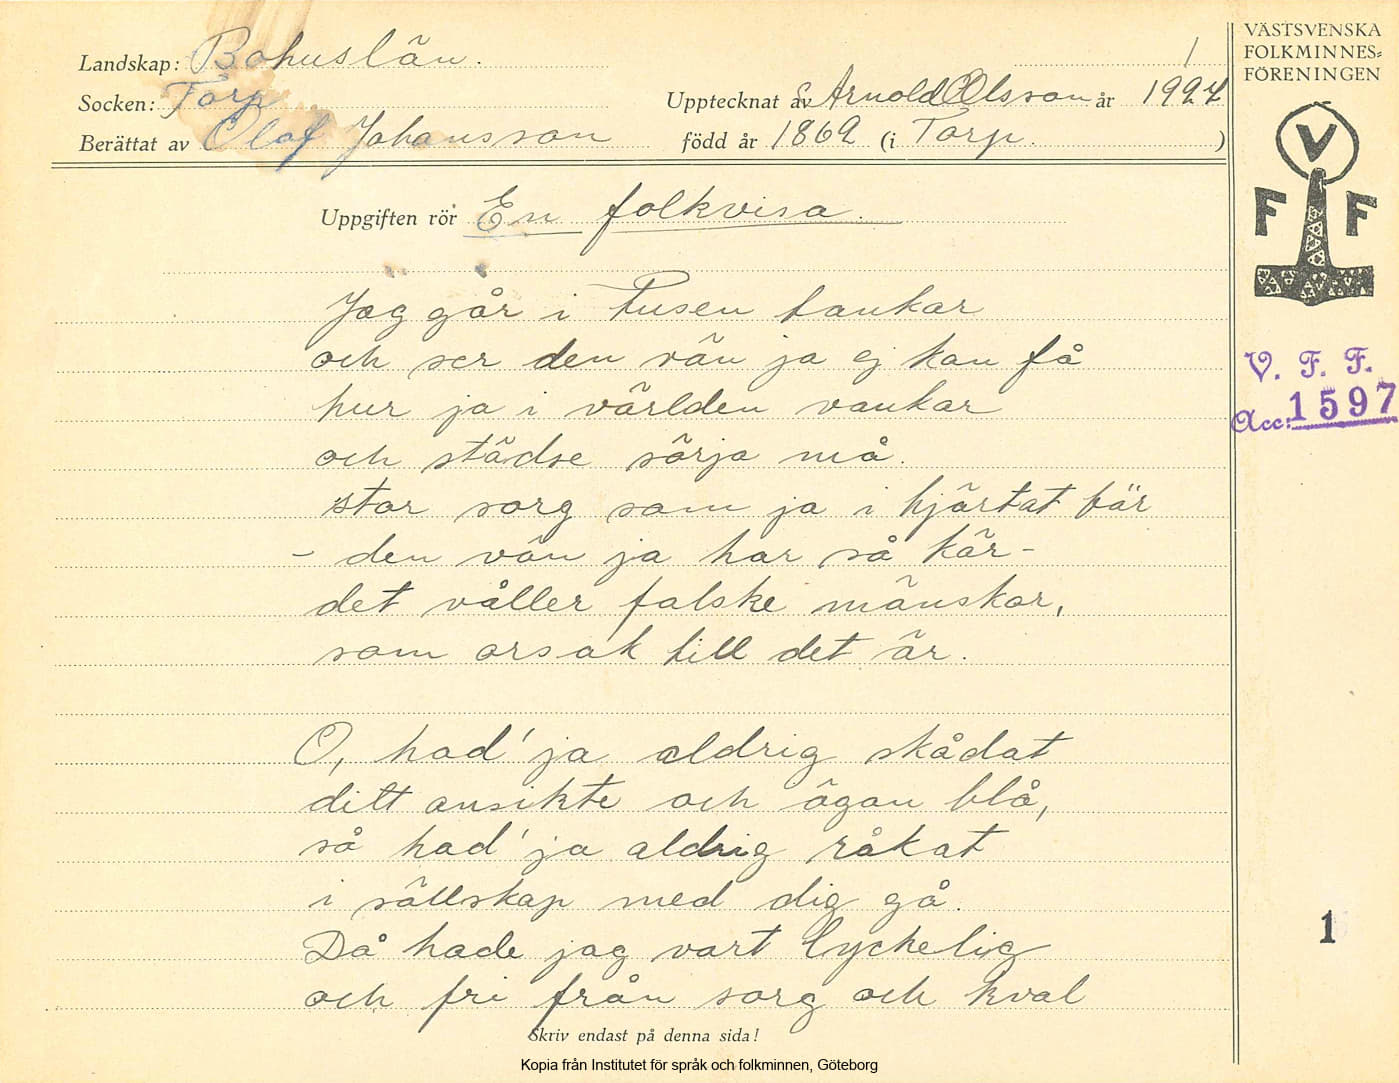 Landskap: Bohuslän.
1
Socken: Torp
Upptecknat av Arnold Olsson år 1927
Berättat av Olof Johansson född år 1869 (i Torp.)
Uppgiften rör En folkvisa.
Jag går i tusen tankar
och ser den vän ja ej kan få
hur ja i världen vankar
och städse sörja må.
stor sorg som ja i hjärtat bär
- den vän ja har så kär -
det våller falske mänskor,
som orsak till det är.
O, had' ja aldrig skådat
ditt ansikte och ögon blå,
så had' ja aldrig råkat
i sällskap med dig gå.
Då hade jag vart lyckelig
och fri från sorg och kval
Skriv endast på denna sida!
Kopia från Institutet för språk och folkminnen, Göteborg
VÄSTSVENSKA
FOLKMINNES=
FÖRENINGEN
V
F F
V. F. F.
Acc: 1597
1